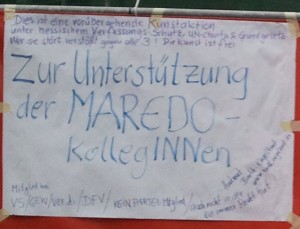 Dies ist eine vorübergehende Kunstaktion
unter hessischem Verfassungs-Schutz UN-Charta & Grundgesetz
Wer sie stört verstößt gegen alle 3! Die Kunst ist frei
Zur Unterstützung
der MAREDO-
KollegINNen
Mitglied im
VS/GEW/Ver.di/DFV/KEIN PARTEI Mitglied/
auch nicht in der